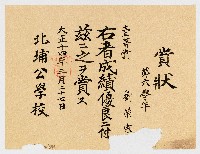 賞狀
第六學年
右者成績優良ニ付
茲ニ之ヲ賞ス
大正十四年三月二十七日
北埔公學校